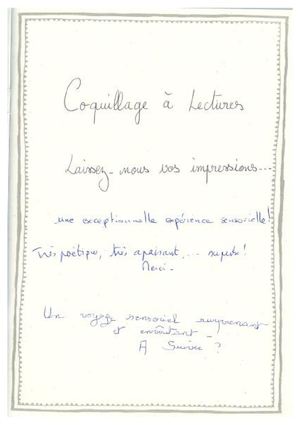 Coquillage à Lectures
Laissez-nous vos impressions...
une exceptionnelle expérience sensorielle!
Très poétique, très apaisant... superbe!
Merci.
Un voyage sensoriel surprenant
et envoûtant -
A Suivre - ?